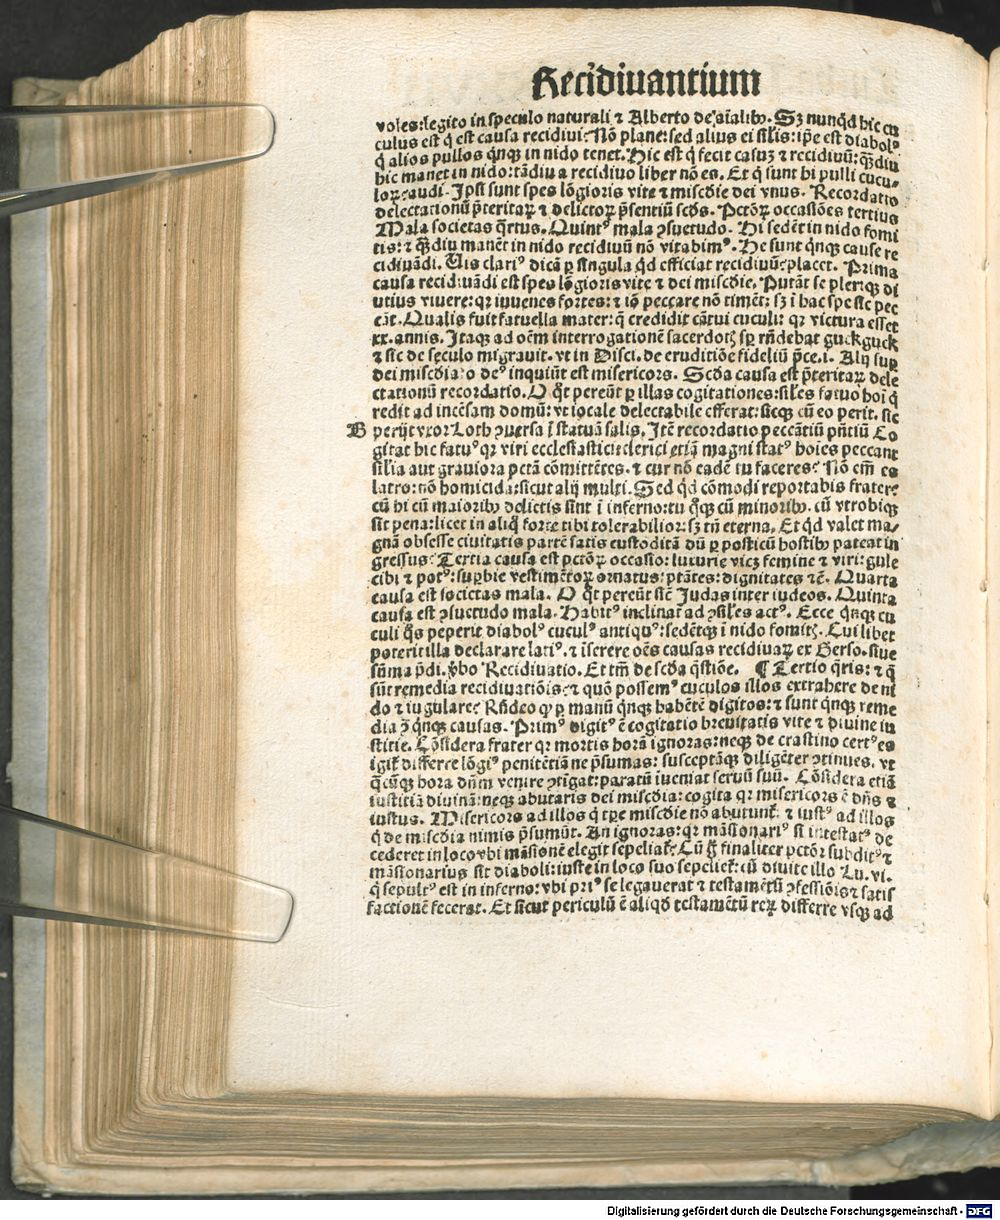 Recidiuantium
voles: legito in speculo naturali ⁊ Alberto de aĩalibꝰ. Sꝫ nunqͥd hic cu
culus est q̃ est causa recidiui: Nõ plane: sed alius ei sil̃is: ip̃e est diabolꝰ
q̃ alios pullos qͥnqꝫ in nido tenet. Hic est q̃ fecit casuꝫ ⁊ recidiuũ: qͣꝫdiu
hic manet in nido: tãdiu a recidiuo liber nõ es. Et q̃ sunt hi pulli cucu-
loꝝ: audi. Ipsi sunt spes lõgioris vite ⁊ mĩscd̃ie dei vnus. Recordatio
delectationũ p̃teritaꝝ ⁊ delictoꝝ p̃sentiũ scd̃s. Pctõꝝ occasiões tertius
Mala societas q̃rtus. Quintꝰ mala ꝯsuetudo. Hi sedẽt in nido fomi
tis: ⁊ qͣ̃diu manẽt in nido recidiuũ nõ vitabimꝰ. He sunt qͥnqꝫ cause re
cidiuãdi. Uis clariꝰ dicã ꝑ singula qͥd efficiat recidiuũ: placet. Prima
causa recidiuãdi est spes lõgioris vite ⁊ dei mĩscd̃ie. Putãt se pleriqꝫ di
utius viuere: qꝛ iuuenes fortes: ⁊ iõ peccare nõ timẽt: sꝫ ĩ hac spe sic pec
cãt. Qualis fuit fatuella mater: q̃ credidit cãtui cuculi: qꝛ victura esset
xx. annis. Itaqꝫ ad oẽm interrogationẽ sacerdotꝭ sꝑ rñdebat guck guck
⁊ sic de seculo migrauit. vt in Disci. de eruditiõe fideliũ p̃ce. i. Alij suꝑ
dei mĩscd̃ia: o deꝰ inquiũt est misericors. Scd̃a causa est p̃teritaꝝ dele
ctationũ recordatio. O qͦt pereũt ꝑ illas cogitationes: sil̃es fatuo hoĩ q̃
redit ad incẽsam domũ: vt iocale delectabile efferat: sicqꝫ cũ eo perit. sic
B perijt vxor Loth ꝯuersa ĩ statuã salis. Itẽ recordatio peccãtiũ p̃ntiũ Co
gitat hic fatuꝰ qꝛ viri ecclesiastici: clerici etiã magni statꝰ hoĩes peccant
sil̃ia aut grauiora pctã cõmittẽtes. ⁊ cur nõ eadẽ tu faceres: Nõ em̃ es
latro: nõ homicida: sicut alij multi. Sed qͥd cõmodi reportabis frater:
cũ hi cũ maioribꝰ delictis sint ĩ inferno: tu qͦqꝫ cũ minoribꝰ. cũ vtrobiqꝫ
sit pena: licet in aliqͦ forte tibi tolerabilior: sꝫ tñ eterna. Et qͥd valet ma-
gnã obsesse ciuitatis partẽ satis custoditã dũ ꝑ posticũ hostibꝰ pateat in
gressus: Tertia causa est pctõꝝ occasio: luxurie vicꝫ femine ⁊ viri: gule
cibi ⁊ potꝰ: suꝑbie vestimẽtoꝝ ornatus: ptãtes: dignitates ⁊c̃. Quarta
causa est societas mala. O qͦt pereũt sic̃ Judas inter iudeos. Quinta
causa est ꝯsuetudo mala. Habitꝰ inclinat ad ꝯsil̃es actꝰ. Ecce qͥnqꝫ cu
culi qͦs peperit diabolꝰ cuculꝰ antiquꝰ: sedẽtqꝫ ĩ nido fomitꝭ. Cui libet
poterit illa declarare latiꝰ. ⁊ ĩserere oẽs causas recidiuaꝝ ex Gerso. siue
sũma p̃di. v̾bo Recidiuatio. Et tm̃ de scd̃a qͣstiõe. ¶ Tertio q̃ris: ⁊ q̃
sũt remedia recidiuatiõis: ⁊ quõ possemꝰ cuculos illos extrahere de ni
do ⁊ iugulare: Rñdeo qꝙ ꝑ manũ qͥnqꝫ habẽtẽ digitos: ⁊ sunt qͥnqꝫ reme
dia ꝯ̃ qͥnqꝫ causas. Primꝰ digitꝰ ẽ cogitatio breuitatis vite ⁊ diuine iu
stitie. Cõsidera frater qꝛ mortis horã ignoras: neqꝫ de crastino certꝰ es
igit̃ differre lõgiꝰ penitẽtiã ne p̃sumas: susceptãqꝫ diligẽter ꝯtinues. vt
q̃cũqꝫ hora dñm venire ꝯtĩgat: paratũ ĩueniat seruũ suũ. Cõsidera etiã
iustitiã diuinã: neqꝫ abutaris dei mĩscd̃ia: cogita qꝛ misericors ẽ dñs ⁊
iustus. Misericors ad illos q̃ tꝑe mĩscd̃ie nõ abutunt̃. ⁊ iustꝰ ad illos
q̃ de mĩscd̃ia nimis p̃sumũt. An ignoras: qꝛ mãsionariꝰ si intestatꝰ de
cederet in loco vbi mãsionẽ elegit sepeliat̃: Cũ g̃ finaliter pctõr subditꝰ ⁊
mãsionarius sit diaboli: iuste in loco suo sepeliet̃: cũ diuite illo Lu. vi.
q̃ sepultꝰ est in inferno: vbi priꝰ se legauerat ⁊ testamẽtũ ꝯfessiõis ⁊ satis
factionẽ fecerat. Et sicut periculũ ẽ aliqͦd testamẽtũ reꝝ differre vsqꝫ ad
Digitalisierung gefördert durch die Deutsche Forschungsgemeinschaft - DFG